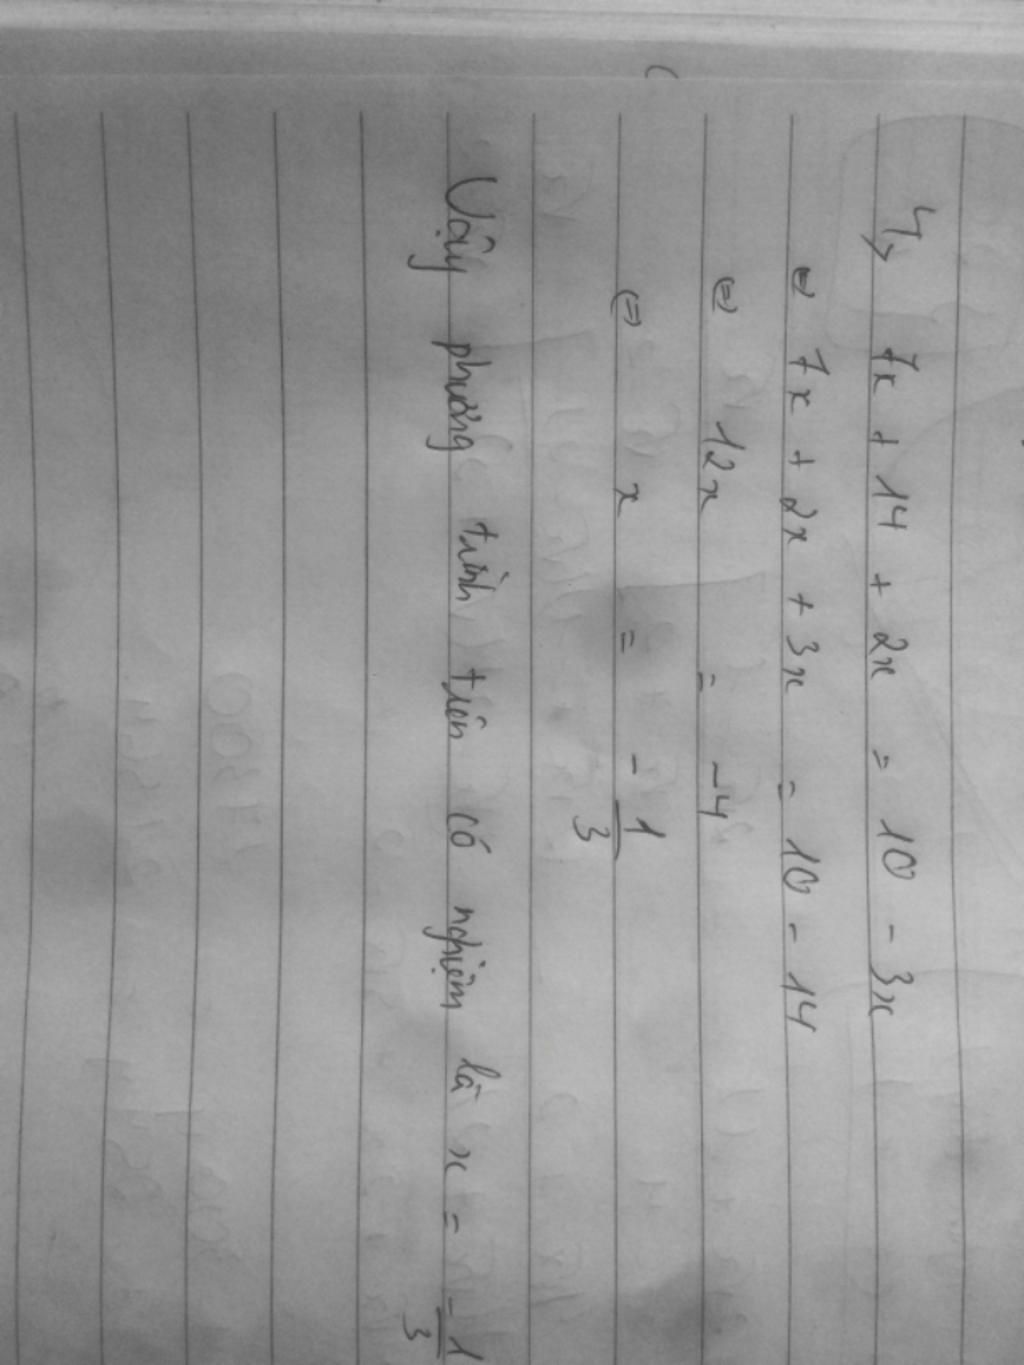 4, 7x + 14 + 2x = 10 - 3x
⇔ 7x + 2x + 3x = 10 - 14
⇔ 12x = -4
⇔ x = - 1/3
Vậy phương trình trên có nghiệm là x = -1/3